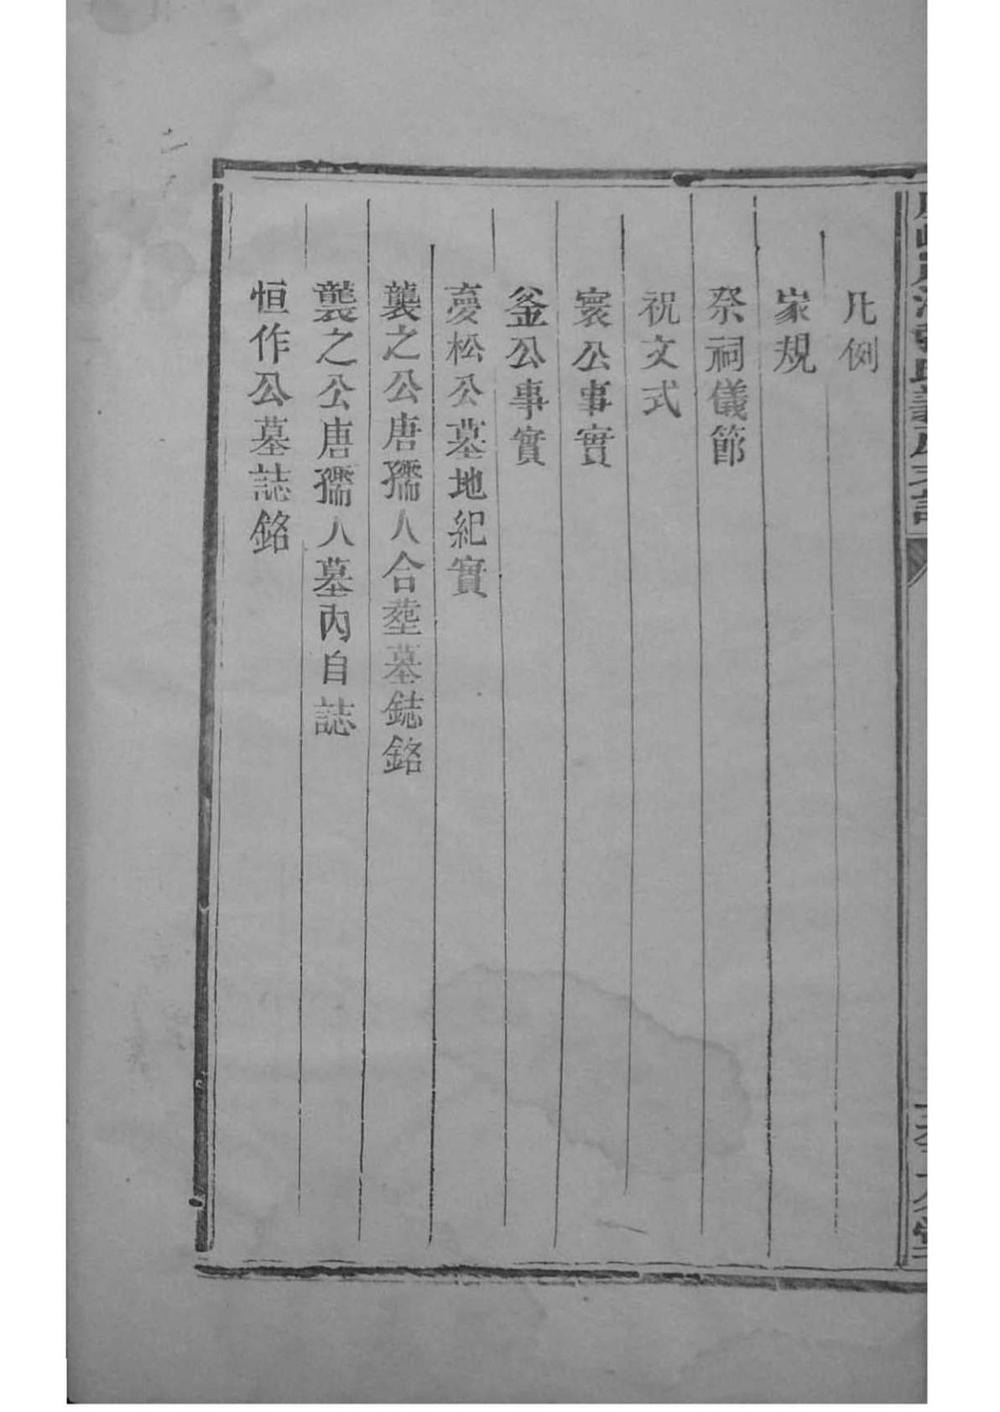 凡例
家規
祭祠儀節
祝文式
寰公事實
釜公事實
夢松公墓地紀實
襲之公唐孺人合塟墓鋕銘
襲之公唐孺人墓內自誌
恒作公墓誌銘